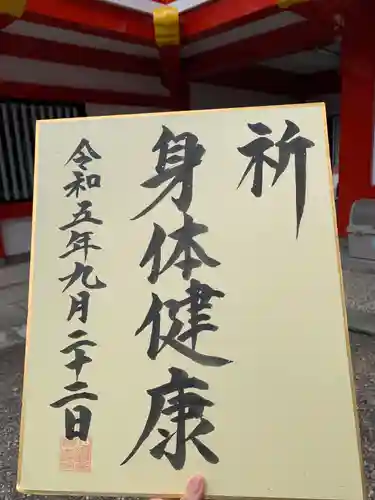 祈
身体健康
令和五年九月二十二日